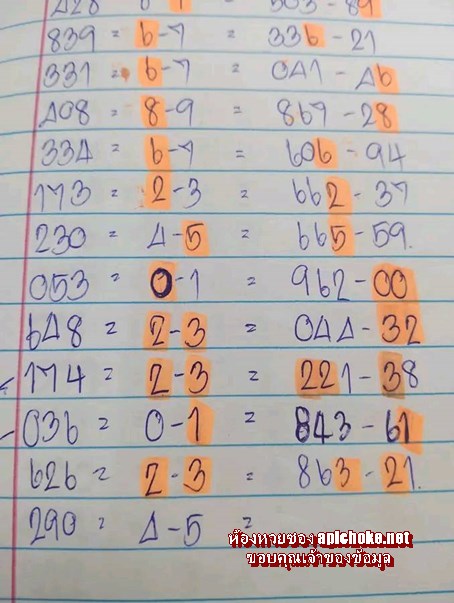 839 = 6-7 = 336-21
331 = 6-7 = 041-46
408 = 8-9 = 867-28
334 = 6-7 = 606-94
173 = 2-3 = 662-37
230 = 4-5 = 665-59.
053 = 0-1 = 962-00
648 = 2-3 = 044-32
174 = 2-3 = 221-38
036 = 0-1 = 843-61
626 = 2-3 = 863-21.
290 = 4-5 =
ห้องหวยซอง apichoke.net
ขอบคุณเจ้าของข้อมูล